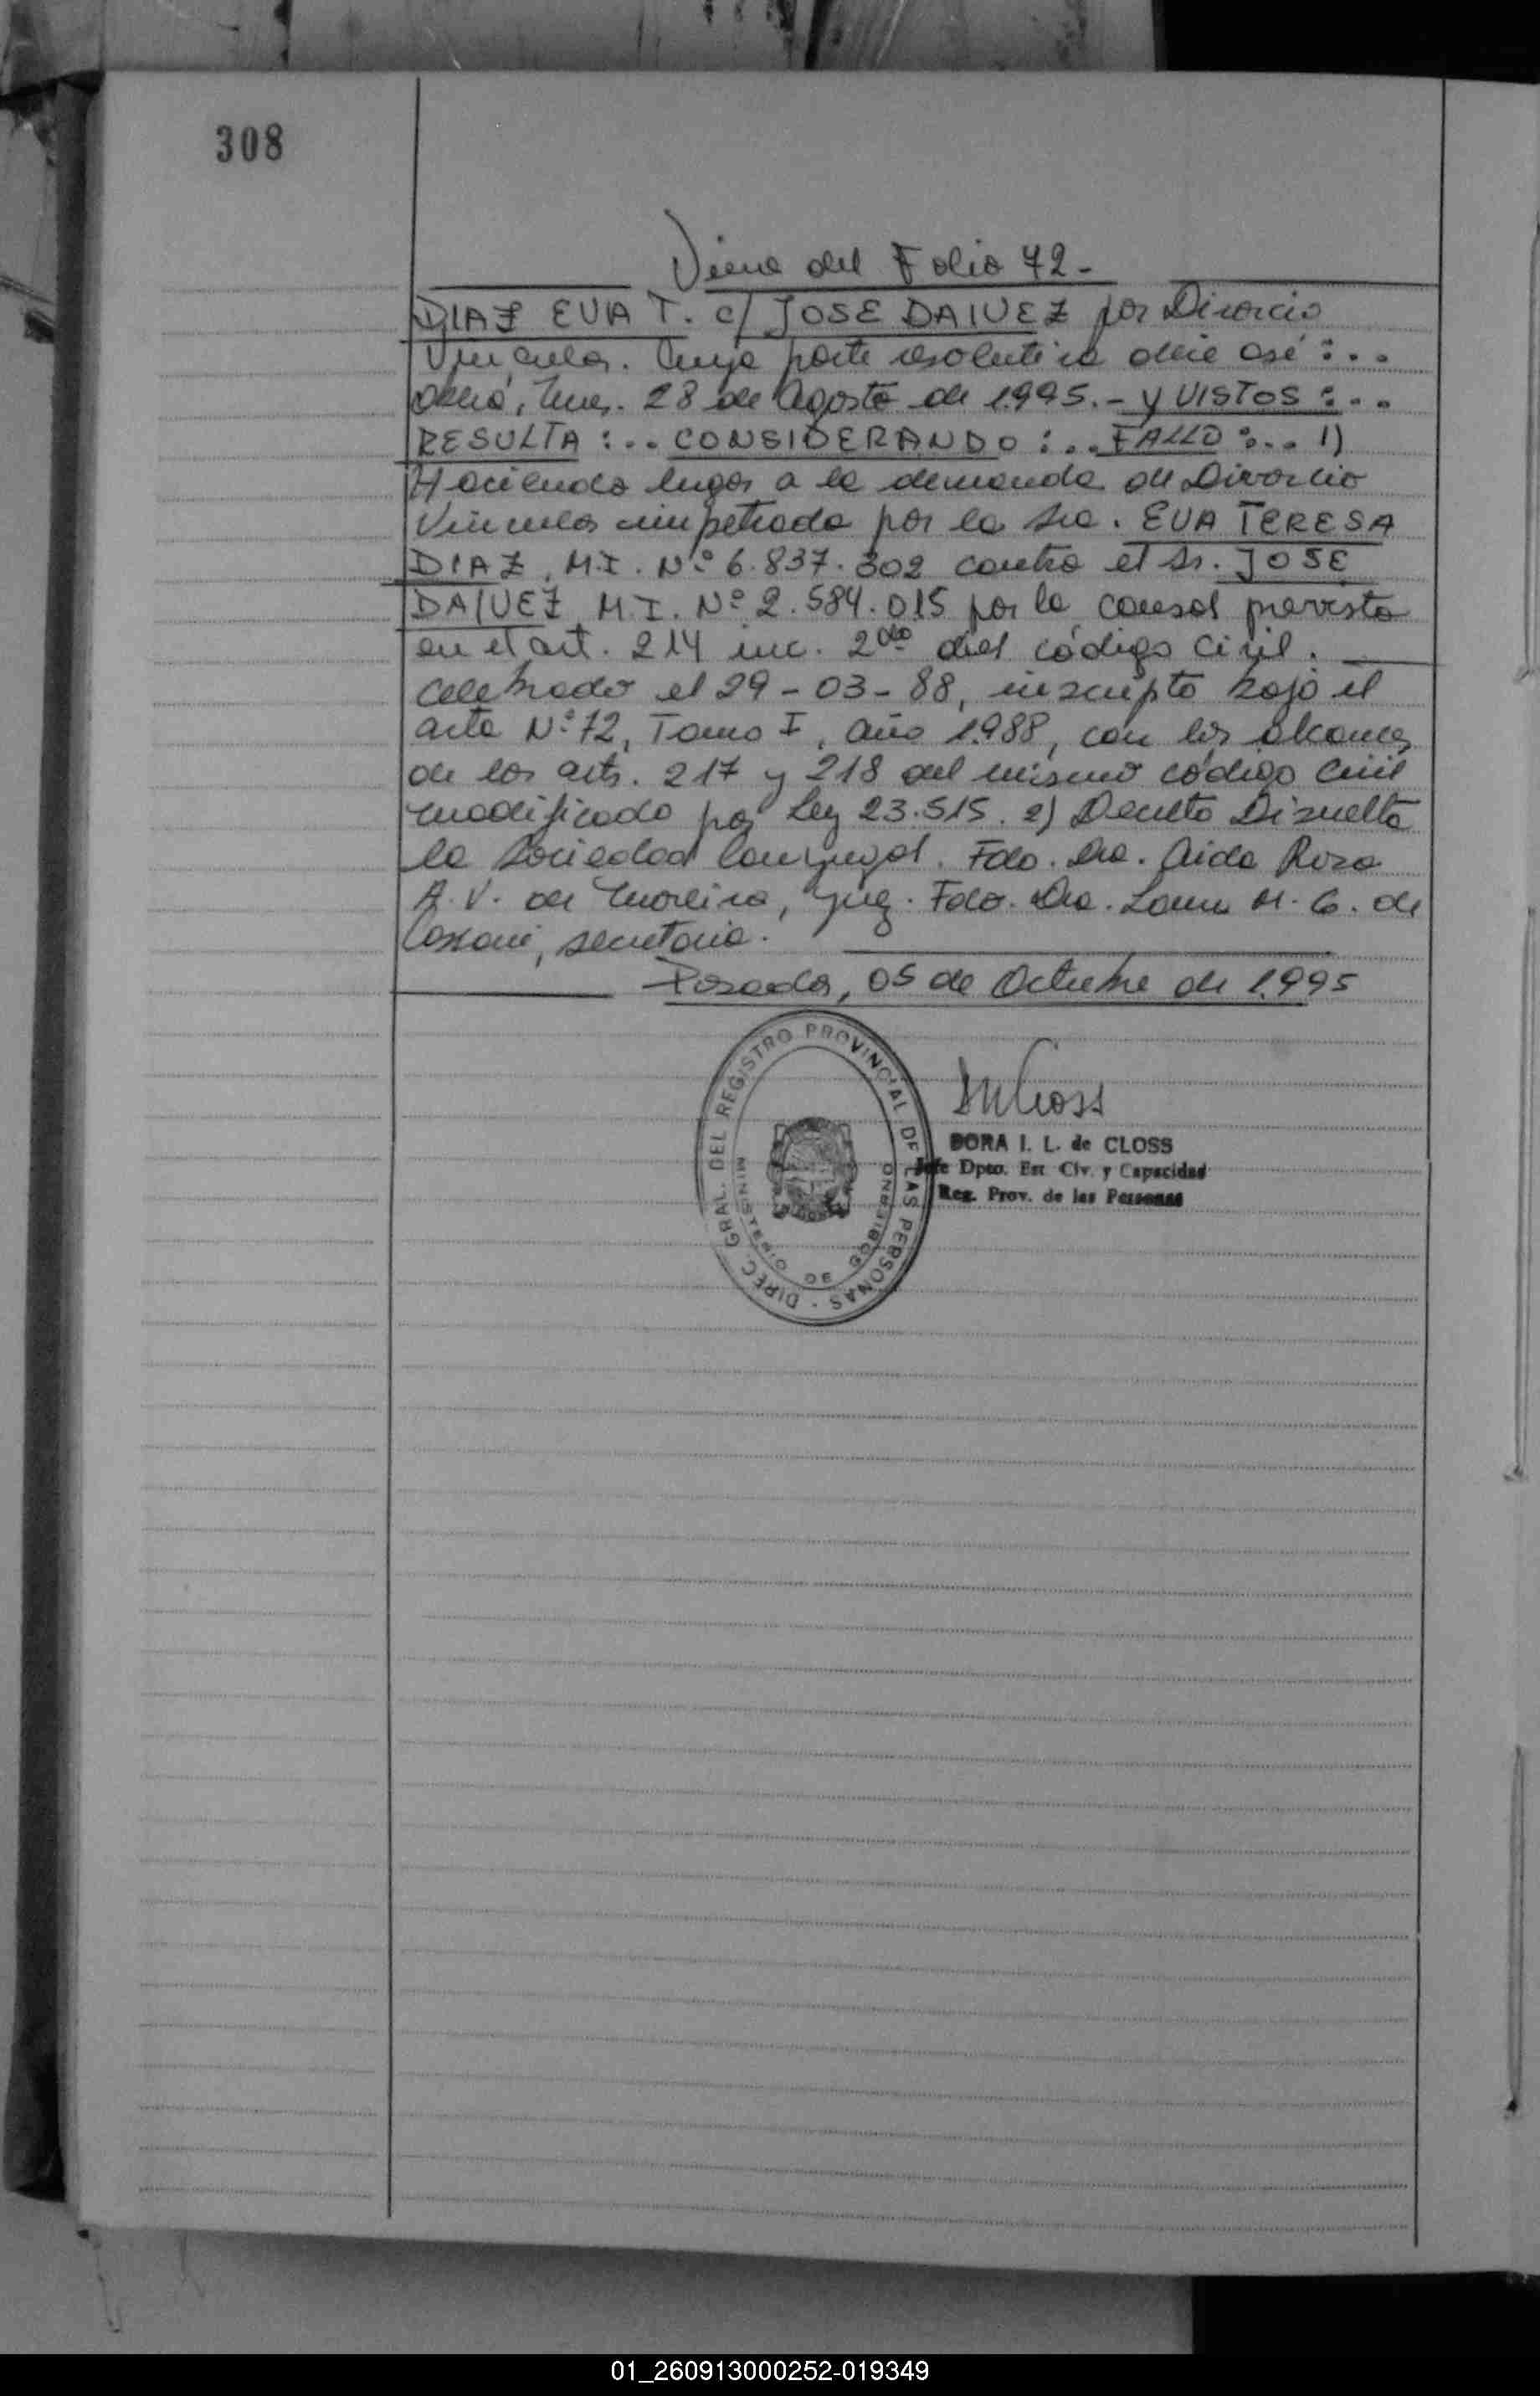 308
Viene del Folio 72-
DIAZ EVA T. c/ JOSE DAIVEZ por Divorcio
Vincular. Cuya parte resolutiva dice así:...
Oberá, Mnes. 28 de Agosto de 1.995.- y VISTOS:...
RESULTA:... CONSIDERANDO:... FALLO:... 1)
Haciendo lugar a la demanda de Divorcio
Vincular impetrada por la Sra. EVA TERESA
DIAZ, M.I. Nº 6.837.302 contra el Sr. JOSE
DAIVEZ M.I. Nº 2.584.015 por la causal prevista
en el art. 214 inc. 2do del código Civil.
celebrado el 29-03-88, inscripto bajo el
acta Nº 72, Tomo I, Año 1.988, con los alcances
de los arts. 217 y 218 del mismo código Civil
modificado por Ley 23.515. 2) Decreto Disuelta
la Sociedad Conyugal. Fdo. Dra. Aida Rosa
A.V. de Moreira, Juez. Fdo. Dra. Laura M. C. de
secretaria.
Posadas, 05 de Octubre de 1.995
DIREC. GRAL. DEL REGISTRO PROVINCIAL DE LAS PERSONAS -
MINISTERIO DE GOBIERNO
DORA I. L. de CLOSS
Jefe Dpto. Est. Civ. y Capacidad
Reg. Prov. de las Personas
01_260913000252-019349